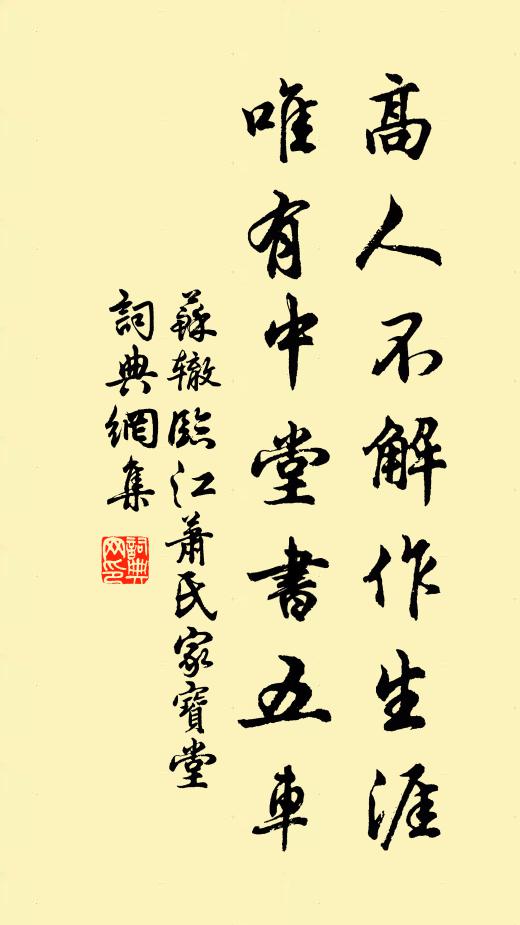 高人不解作生涯
唯有中堂書五車
蘇辙臨江蕭氏家寶堂
詞典網集
詞典
网印